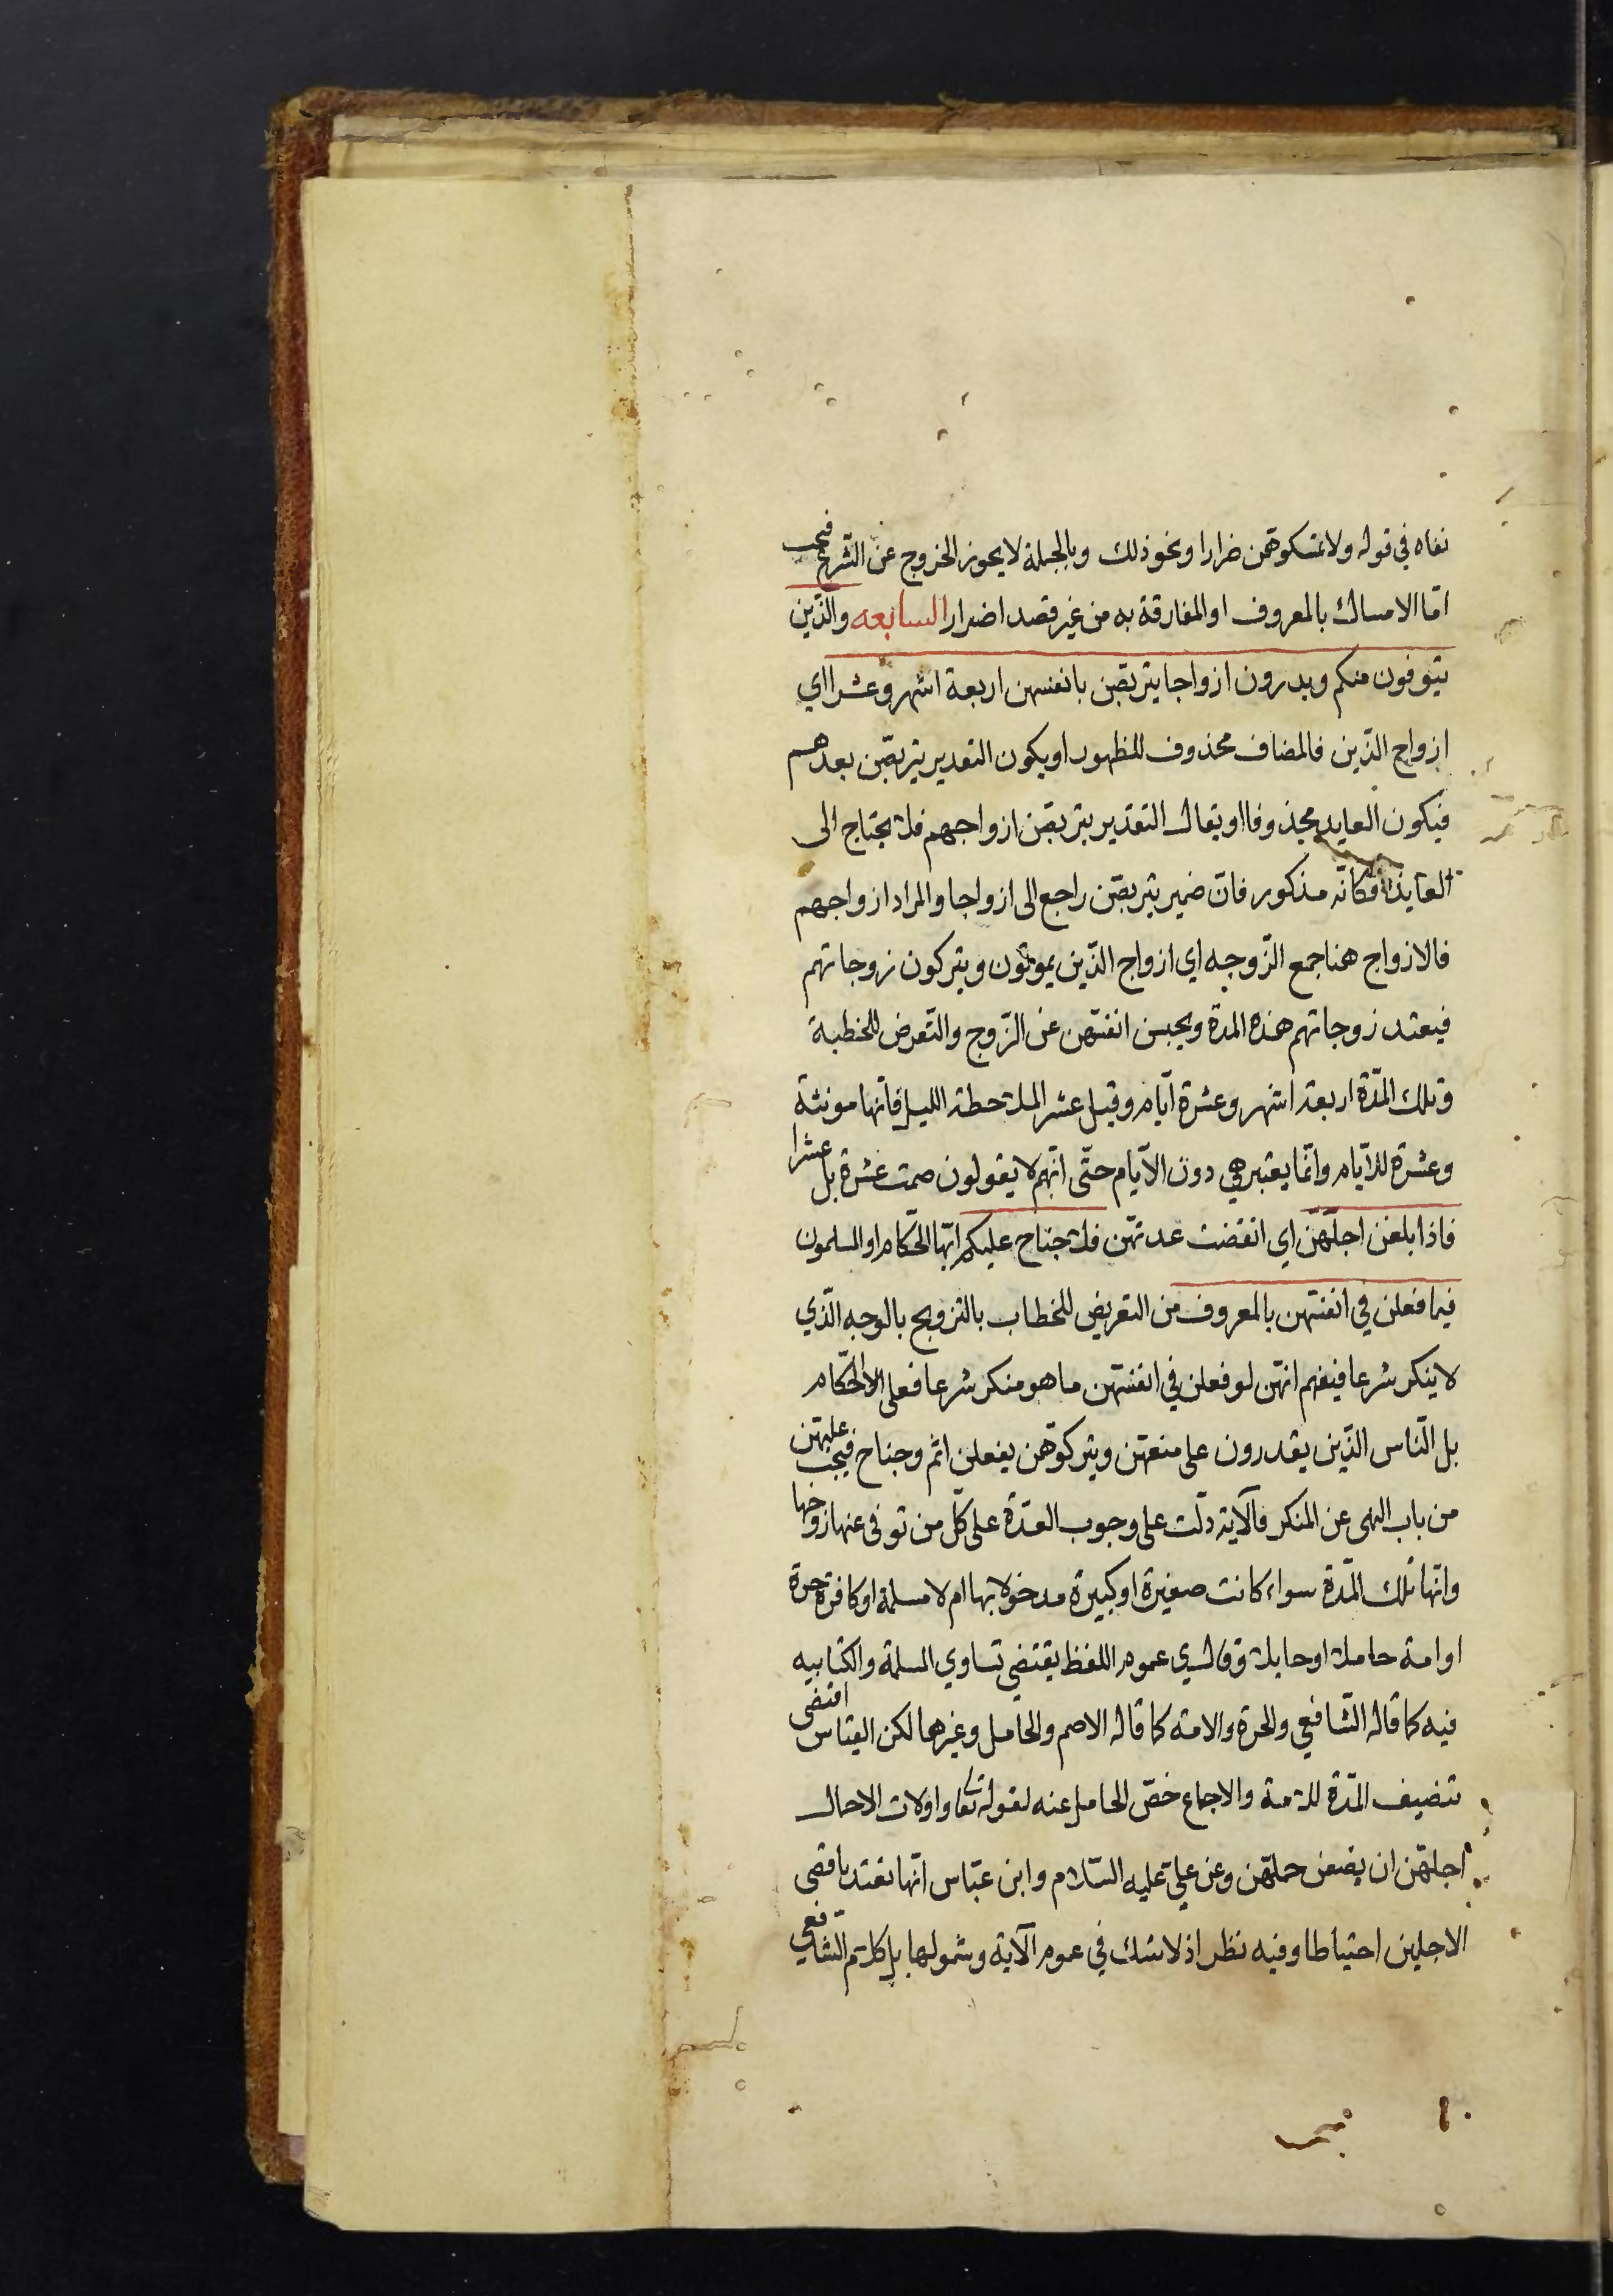 نفاه في قوله ولا تمسكوهن ضرارا ونحو ذلك وبالجملة لا يجوز الخروج عن الشرع فيجب
امّا الامساك بالمعروف او المفارقة به من غير قصد اضرار السابعه والّذين
يتوفون منكم ويذرون ازواجا يتربصّن بانفسهن اربعة اشهر وعشرا اي
ازواج الذّين فالمضاف محذوف للظهور او يكون التقدير يتربصّن بعدهم
فيكون العايد محذوفا او يقال التقدير يتربصّن ازواجهم فلا يحتاج الى
العايد فكانّه مذكور فانّ ضمير يتربصّن راجع الى ازواجا والمراد ازواجهم
فالازواج هنا جمع الزّوجه اي ازواج الذّين يموتون ويتركون زوجاتهم
فيعتد زوجاتهم هذه المدة ويحبسن انفسهن عن الزّوج والتّعرض للخطبة
وتلك المدّة اربعة اشهر وعشرة ايّام وقيل عشر الملاحظة الليل فانّها مونثة
وعشرة للايّام وانّما يعتبر هي دون الايّام حتّى انّهم لا يقولون صمت عشرة بل عشرا
فاذا بلغن اجلهّن اي انقضت عدتهّن فلا جناح عليكم ايّها الحكّام او المسلمون
فيما فعلن في انفسهن بالمعروف من التعريض للخطاب بالتزويج بالوجه الّذي
لا ينكر شرعا فيفهم انهّن لو فعلن في انفسهن ما هو منكر شرعا فعلى الحكّام
بل النّاس الذّين يقدرون على منعهّن ويتركوهّن يفعلن اثم وجناح فيجب عليهن
من باب النهى عن المنكر فالآية دلّت على وجوب العدّة على كلّ من توفى عنها زوجها
وانّها تلك المدّة سواء كانت صغيرة او كبيرة مدخولا بها ام لا مسلمة او كافرة حرة
او امة حاملا او حايلا وقال عموم اللفظ يقتضي تساوي المسلمة والكتابيه
فيه كما قاله الشّافعي والحرة والامة كما قاله الاصم والحامل وغيرها لكن القياس اقتضى
تنصيف المدّة للامة والاجماع خصّ الحامل عنه لقوله تعا واولات الاحمال
اجلهّن ان يضعن حملهّن وعن عليّ عليه السّلام وابن عبّاس انّها تعتد باقصى
الاجلين احتياطا وفيه نظر اذ لا شك في عموم الآية وشمولها بل كلام الشّافعي